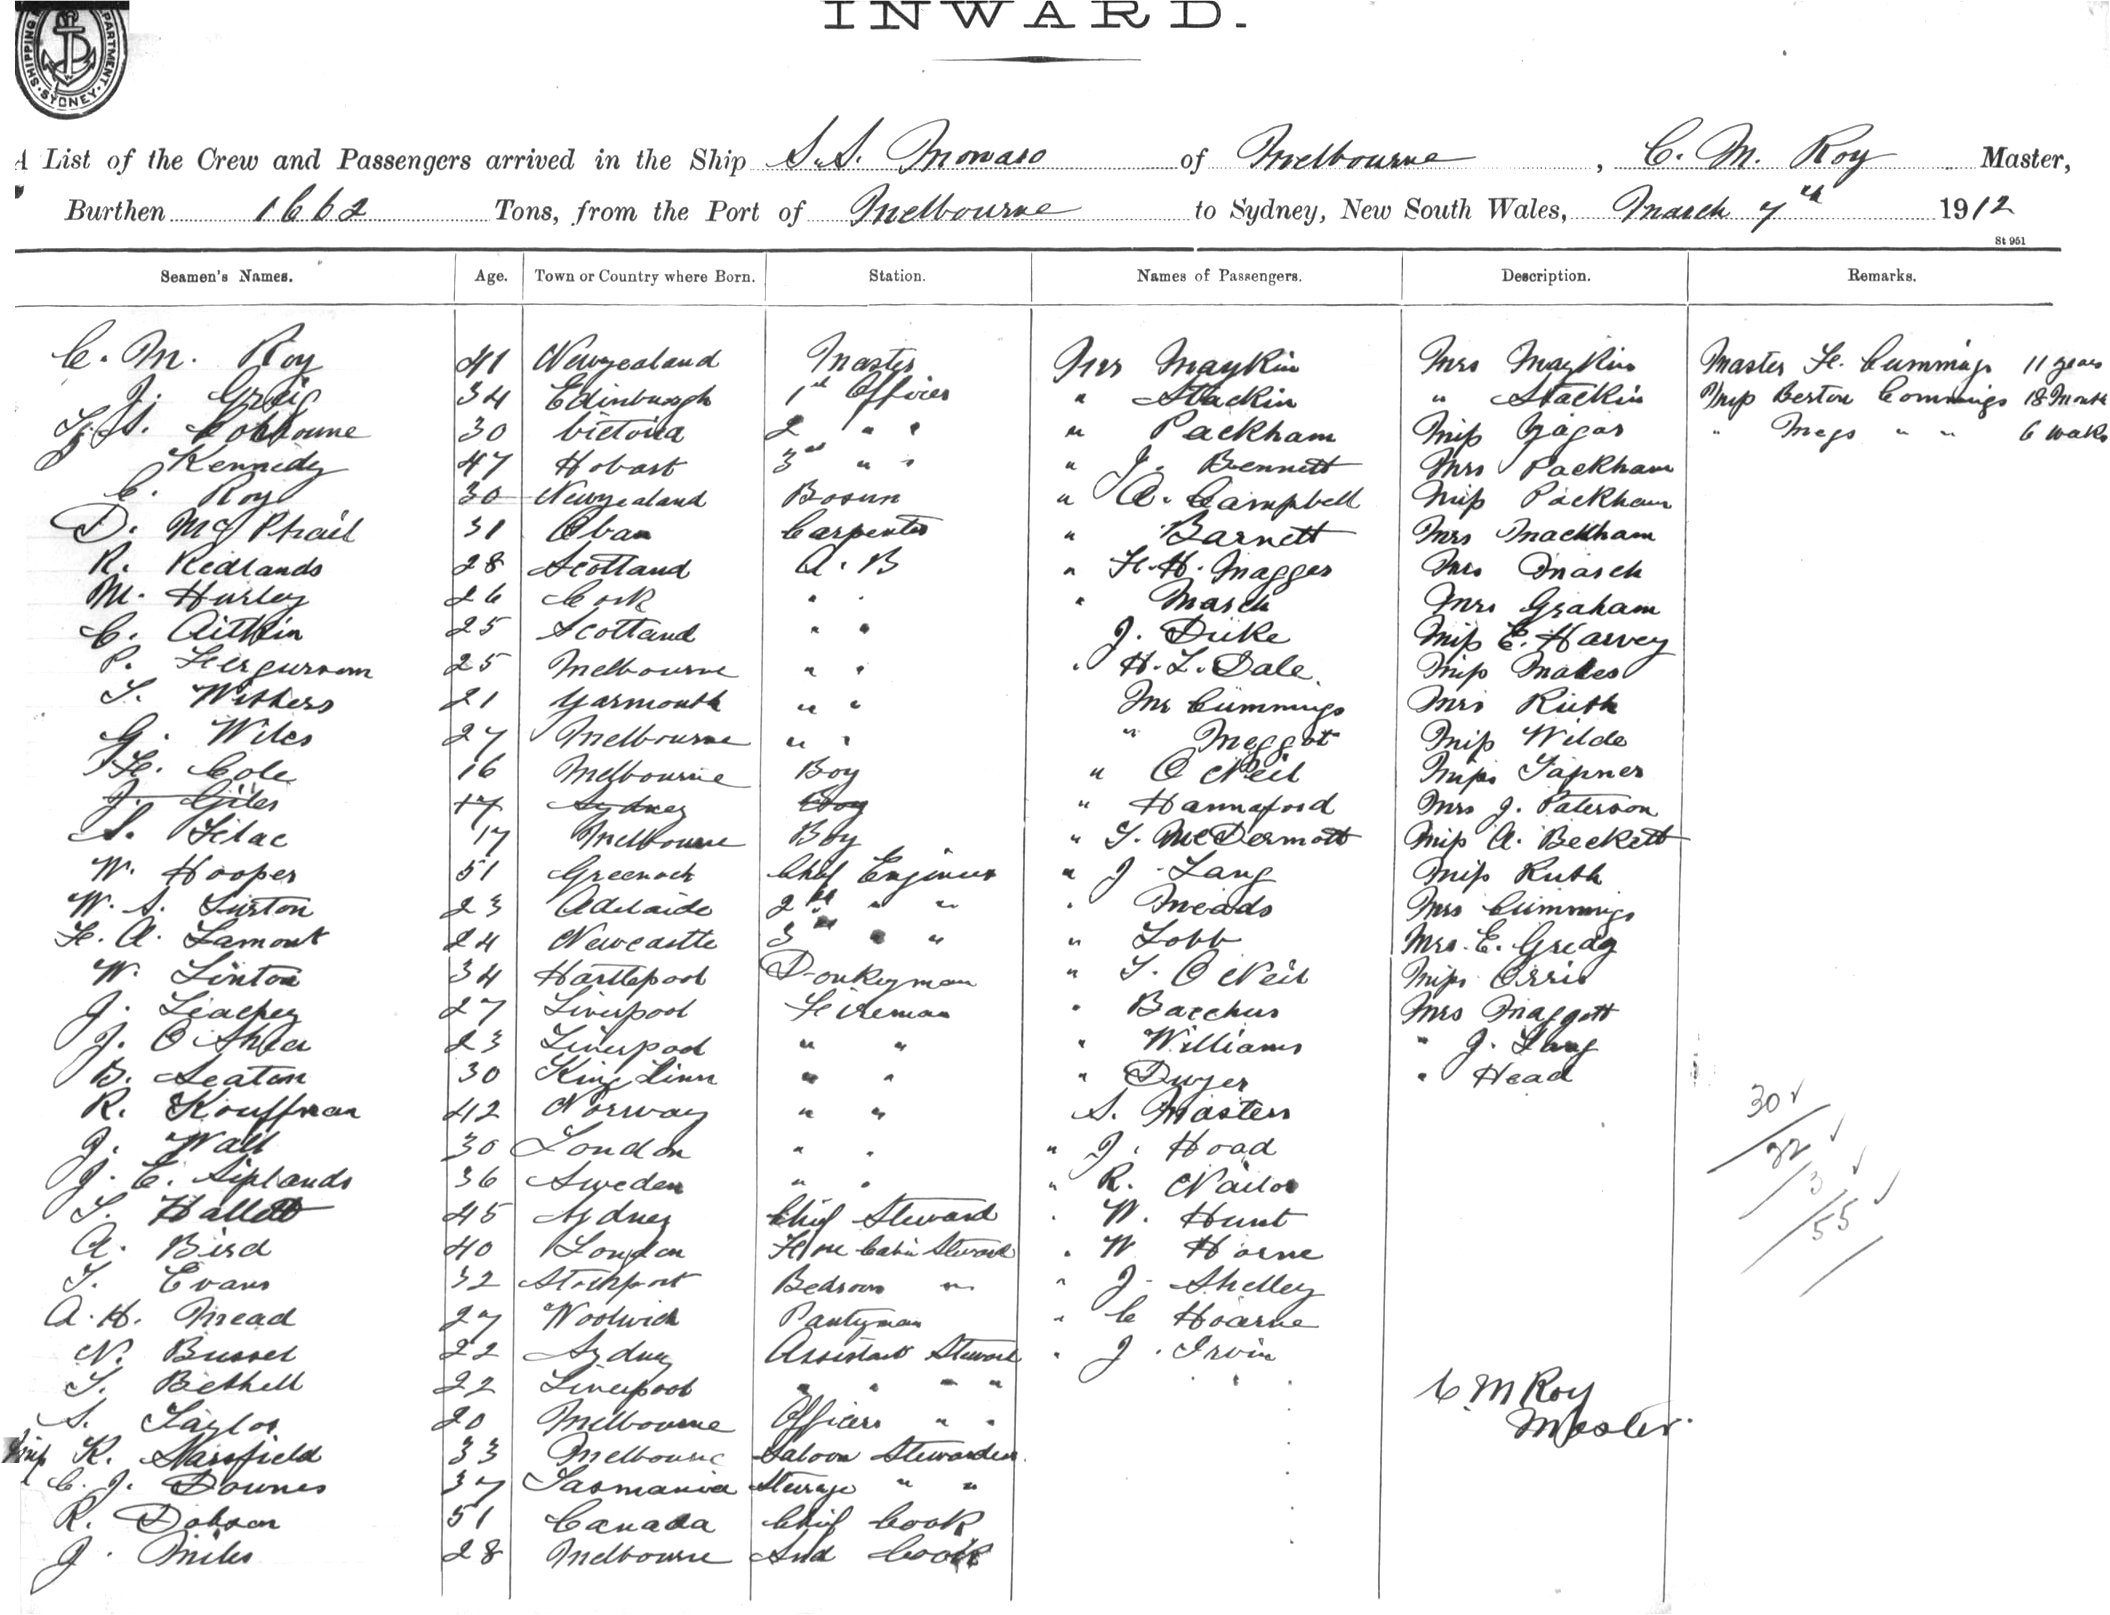 SHIPPING DEPARTMENT. SYDNEY.
INWARD.
A List of the Crew and Passengers arrived in the Ship S.S. Monaro of Melbourne, C. M. Roy Master,
Burthen 1662 Tons, from the Port of Melbourne to Sydney, New South Wales, March 7th 1912
St 951
Seamen's Names. Age. Town or Country where Born. Station. Names of Passengers. Description. Remarks.
C. M. Roy 41 Newzealand Master Mrs Maykin Mrs Maykin Master H. Cummings 11 years
J. Greig 34 Edinburgh 1st Officer " Stackin " Stackin Miss Berton Cummings 18 Month
Colboune 30 Victoria 2 " " " Packham Miss Gagar " Megs " " 6 weeks
Kennedy 47 Hobart 3rd " " " J. Bennett Mrs Packham
C. Roy 30 Newzealand Bosun " A. Campbell Miss Packham
D. McPhail 31 Oban Carpenter " Barnett Mrs Mackham
R. Redlands 28 Scotland A. B " H. H. Magger Mrs March
M. Hurley 26 Cork " " " March Mrs Graham
C. Aitkin 25 Scotland " " J. Duke Miss E. Harvey
P. Ferguson 25 Melbourne " " " H. L. Dale. Miss Mabes
T. Withers 21 Yarmouth " " Mr Cummings Mrs Ruth
G. Wiles 27 Melbourne " " " Meggot Miss Wilde
H. Cole 16 Melbourne Boy " O Neil Miss Tapner
J. Giles 17 Sydney Boy " Hannaford Mrs J. Paterson
S. Filac 17 Melbourne Boy " T. McDermott Miss A. Beckett
W. Hooper 51 Greenock Chief Engineer " J. Lang Miss Ruth
W. S. Turton 23 Adelaide 2nd " " " Meads Mrs Cummings
H. A. Lamont 24 Newcastle 3rd " " " Lobb Mrs. E. Greag
W. Linton 34 Hartlepool Donkeyman " T. O Neil Miss Orris
J. Leachey 27 Liverpool Fireman " Bacchus Mrs Maggott
J. O Shea 23 Liverpool " " " Williams " J. Lang
B. Seaton 30 King Linn " " " Dwyer " Head
R. Kouffman 42 Norway " " S. Masters 30 ✓
J. Wall 30 London " " " J. Hoad 22 ✓
J. E. Siplands 36 Sweden " " " R. Nailor 3 ✓
T. Hallett 45 Sydney Chief Steward " W. Hunt 55 ✓
A. Bird 40 London Fore Cabin Steward " W Horne
T. Evans 32 Stockport Bedroom " " J. Shelley
A. H. Mead 27 Woolwich Pantryman " C Hoarne
N. Bussel 22 Sydney Assistant Steward " J. Irvin
T. Bethell 22 Liverpool " " " "
C. M Roy
S. Taylor 20 Melbourne Officers " "
Master.
Miss K. Stansfield 33 Melbourne Saloon Stewardess
" C. J. Downes 37 Tasmania Steerage " "
R. Dobson 51 Canada Chief Cook
J. Miles 28 Melbourne 2nd Cook